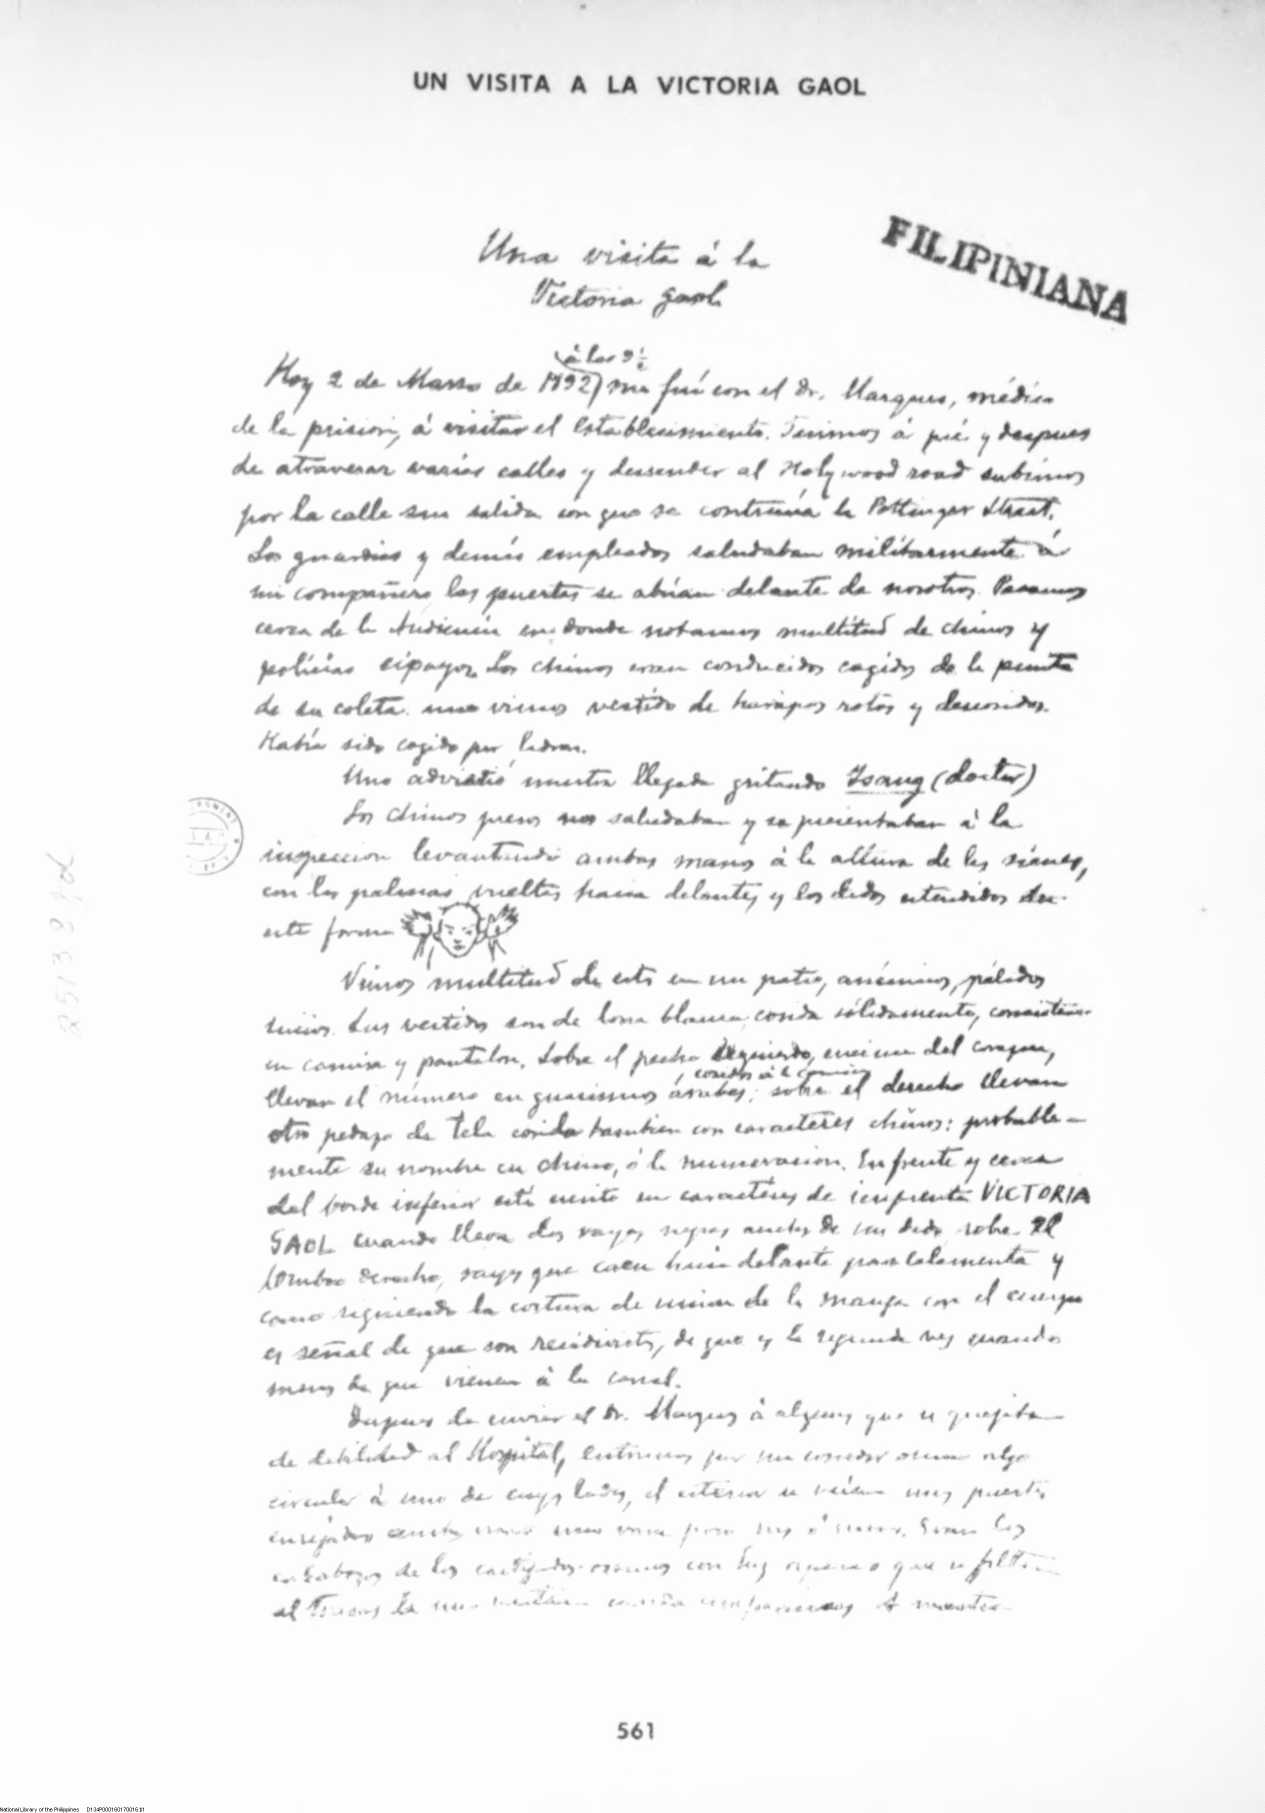 UN VISITA A LA VICTORIA GAOL
FILIPINIANA
Una visita á la
Victoria Gaol
á las 9½
Hoy 2 de Marzo de 1892 me fuí con el Dr. Marques, médico
de la prision, á visitar el establecimiento. Fuimos á pié y despues
de atravesar varias calles y descender al Holywood road subimos
por la calle sin salida con que se continúa la Pottinger Street.
Los guardias y demás empleados saludaban militarmente á
mi compañero las puertas se abrían delante de nosotros. Pasamos
cerca de la Audiencia en donde notamos multitud de chinos y
policías cipayos. Los chinos eran conducidos cogidos de la punta
de su coleta. uno vimos vestido de harapos rotos y descosidos.
Había sido cogido por ladron.
Uno advirtió nuestra llegada gritando Isang (doctor)
Los chinos presos nos saludaban y se presentaban á la
inspeccion levantando ambas manos á la altura de las sienes,
con las palmas vueltas hacia delante, y los dedos estendidos de
esta forma
Vimos multitud de esto en un patio, anémicos, pálidos
sucios. Sus vestidos son de lona blanca cosida sólidamente, consisten
en camisa y pantalon. Sobre el pecho izquierdo, encima del corazon,
cosidos á la camisa
llevan el número en guarismos árabes; sobre el derecho llevan
otro pedazo de tela cosida tambien con caractéres chinos: probable-
mente su nombre en chino, ó la numeracion. En frente y cerca
del borde inferior está escrito en caractéres de imprenta VICTORIA
GAOL cuando lleva dos rayas negras anchas de un dedo sobre el
hombro derecho, rayas que caen hacia delante paralelamente y
como siguiendo la costura de union de la manga con el cuerpo
es señal de que son reincidentes, de que es la segunda vez cuando
menos de que vienen á la carcel.
Despues de enviar el Dr. Marques á algunos que se quejaban
de debilidad al Hospital, entramos por un corredor algo
circular á uno de cuyos lados, el esterior se veían unas puertas
enrejadas Eran los
calabozos de los castigados con luz que se filtra
al través de una ventana A nuestra
561
National Library of the Philippines